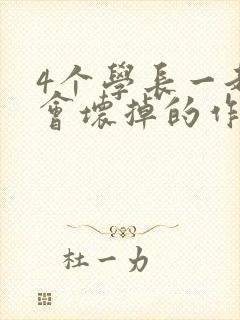 4个學長一
會壞掉的作
杜一力